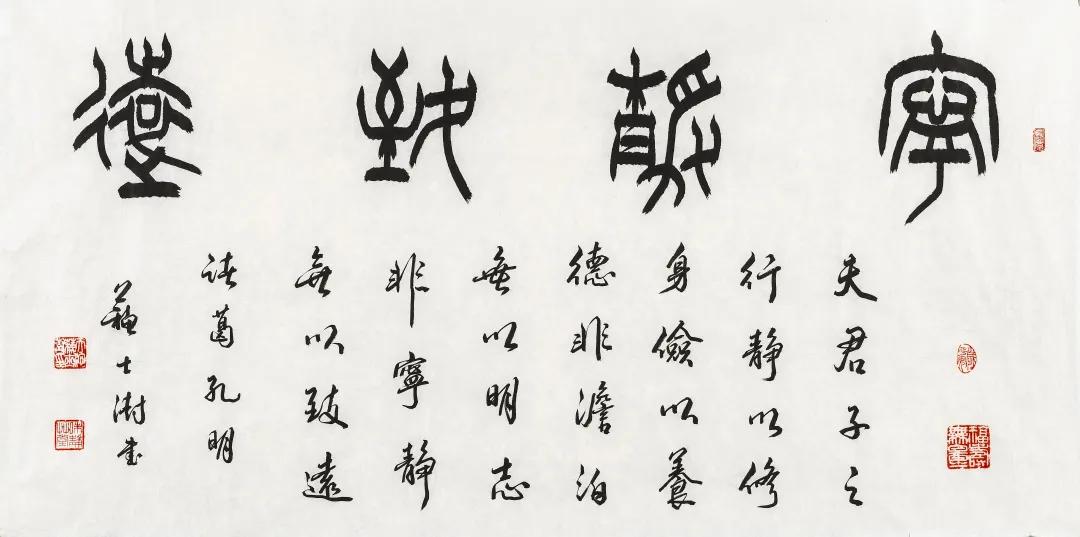 寧靜致遠
夫君子之
行静以修
身儉以養
德非澹泊
無以明志
非寧静
無以致遠
諸葛孔明
蘇士澍書